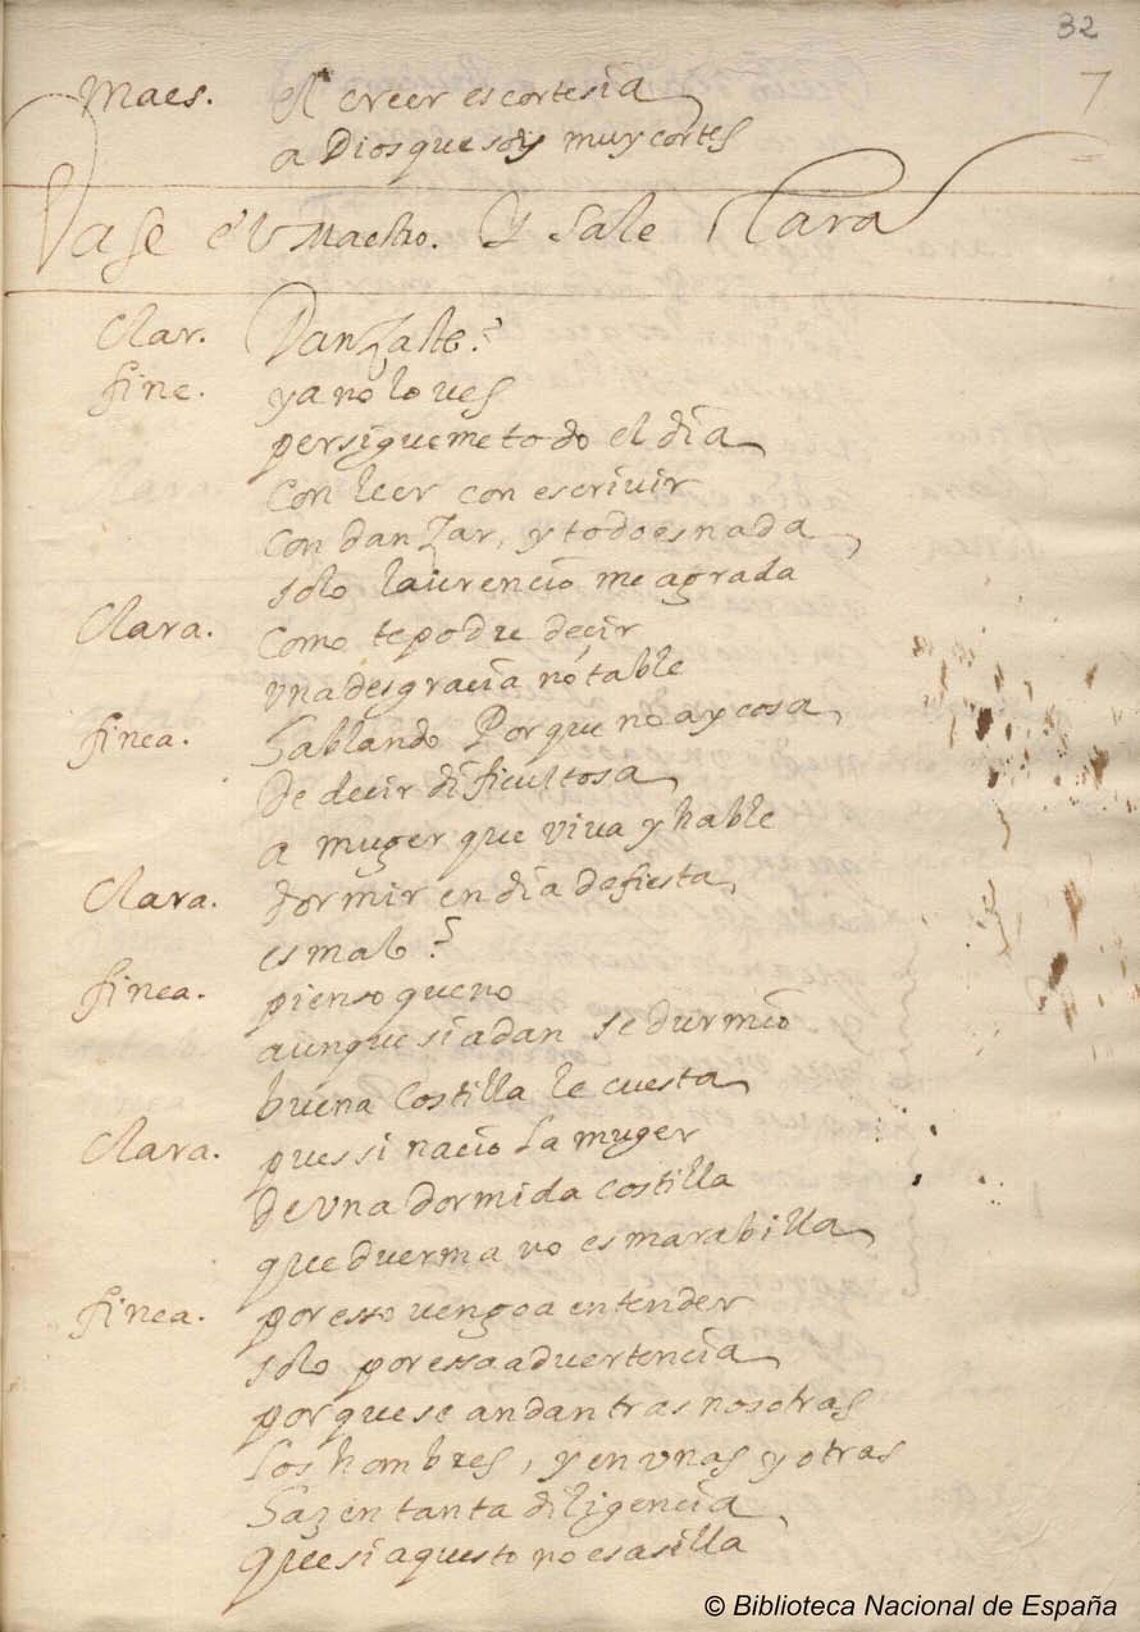 32
7
Maes. el creer es cortesia
a Dios que sois muy cortes
Vase el Maestro. Y sale Clara
Clar. Danzaste?
fine. ya no lo ves
persigueme todo el dia
con leer con escriuir
con danzar, y todo es nada
solo laurencio me agrada
Clara. Como te podre deçir
vna desgracia notable
finea. hablando Porque no ay cosa
De decir dificultosa
a muger que viua y hable
Clara. dormir en dia de fiesta
es malo?
finea. pienso que no
aunque si adan se durmio
buena Costilla le cuesta
Clara. pues si nacio la muger
de vna dormida costilla
que duerma no es marabilla
finea. por esso vengo a entender
solo por essa aduertencia
porque se andan tras nosotras
los hombres, y en vnas y otras
hazen tanta diligencia
que si aquesto no es asilla
© Biblioteca Nacional de España